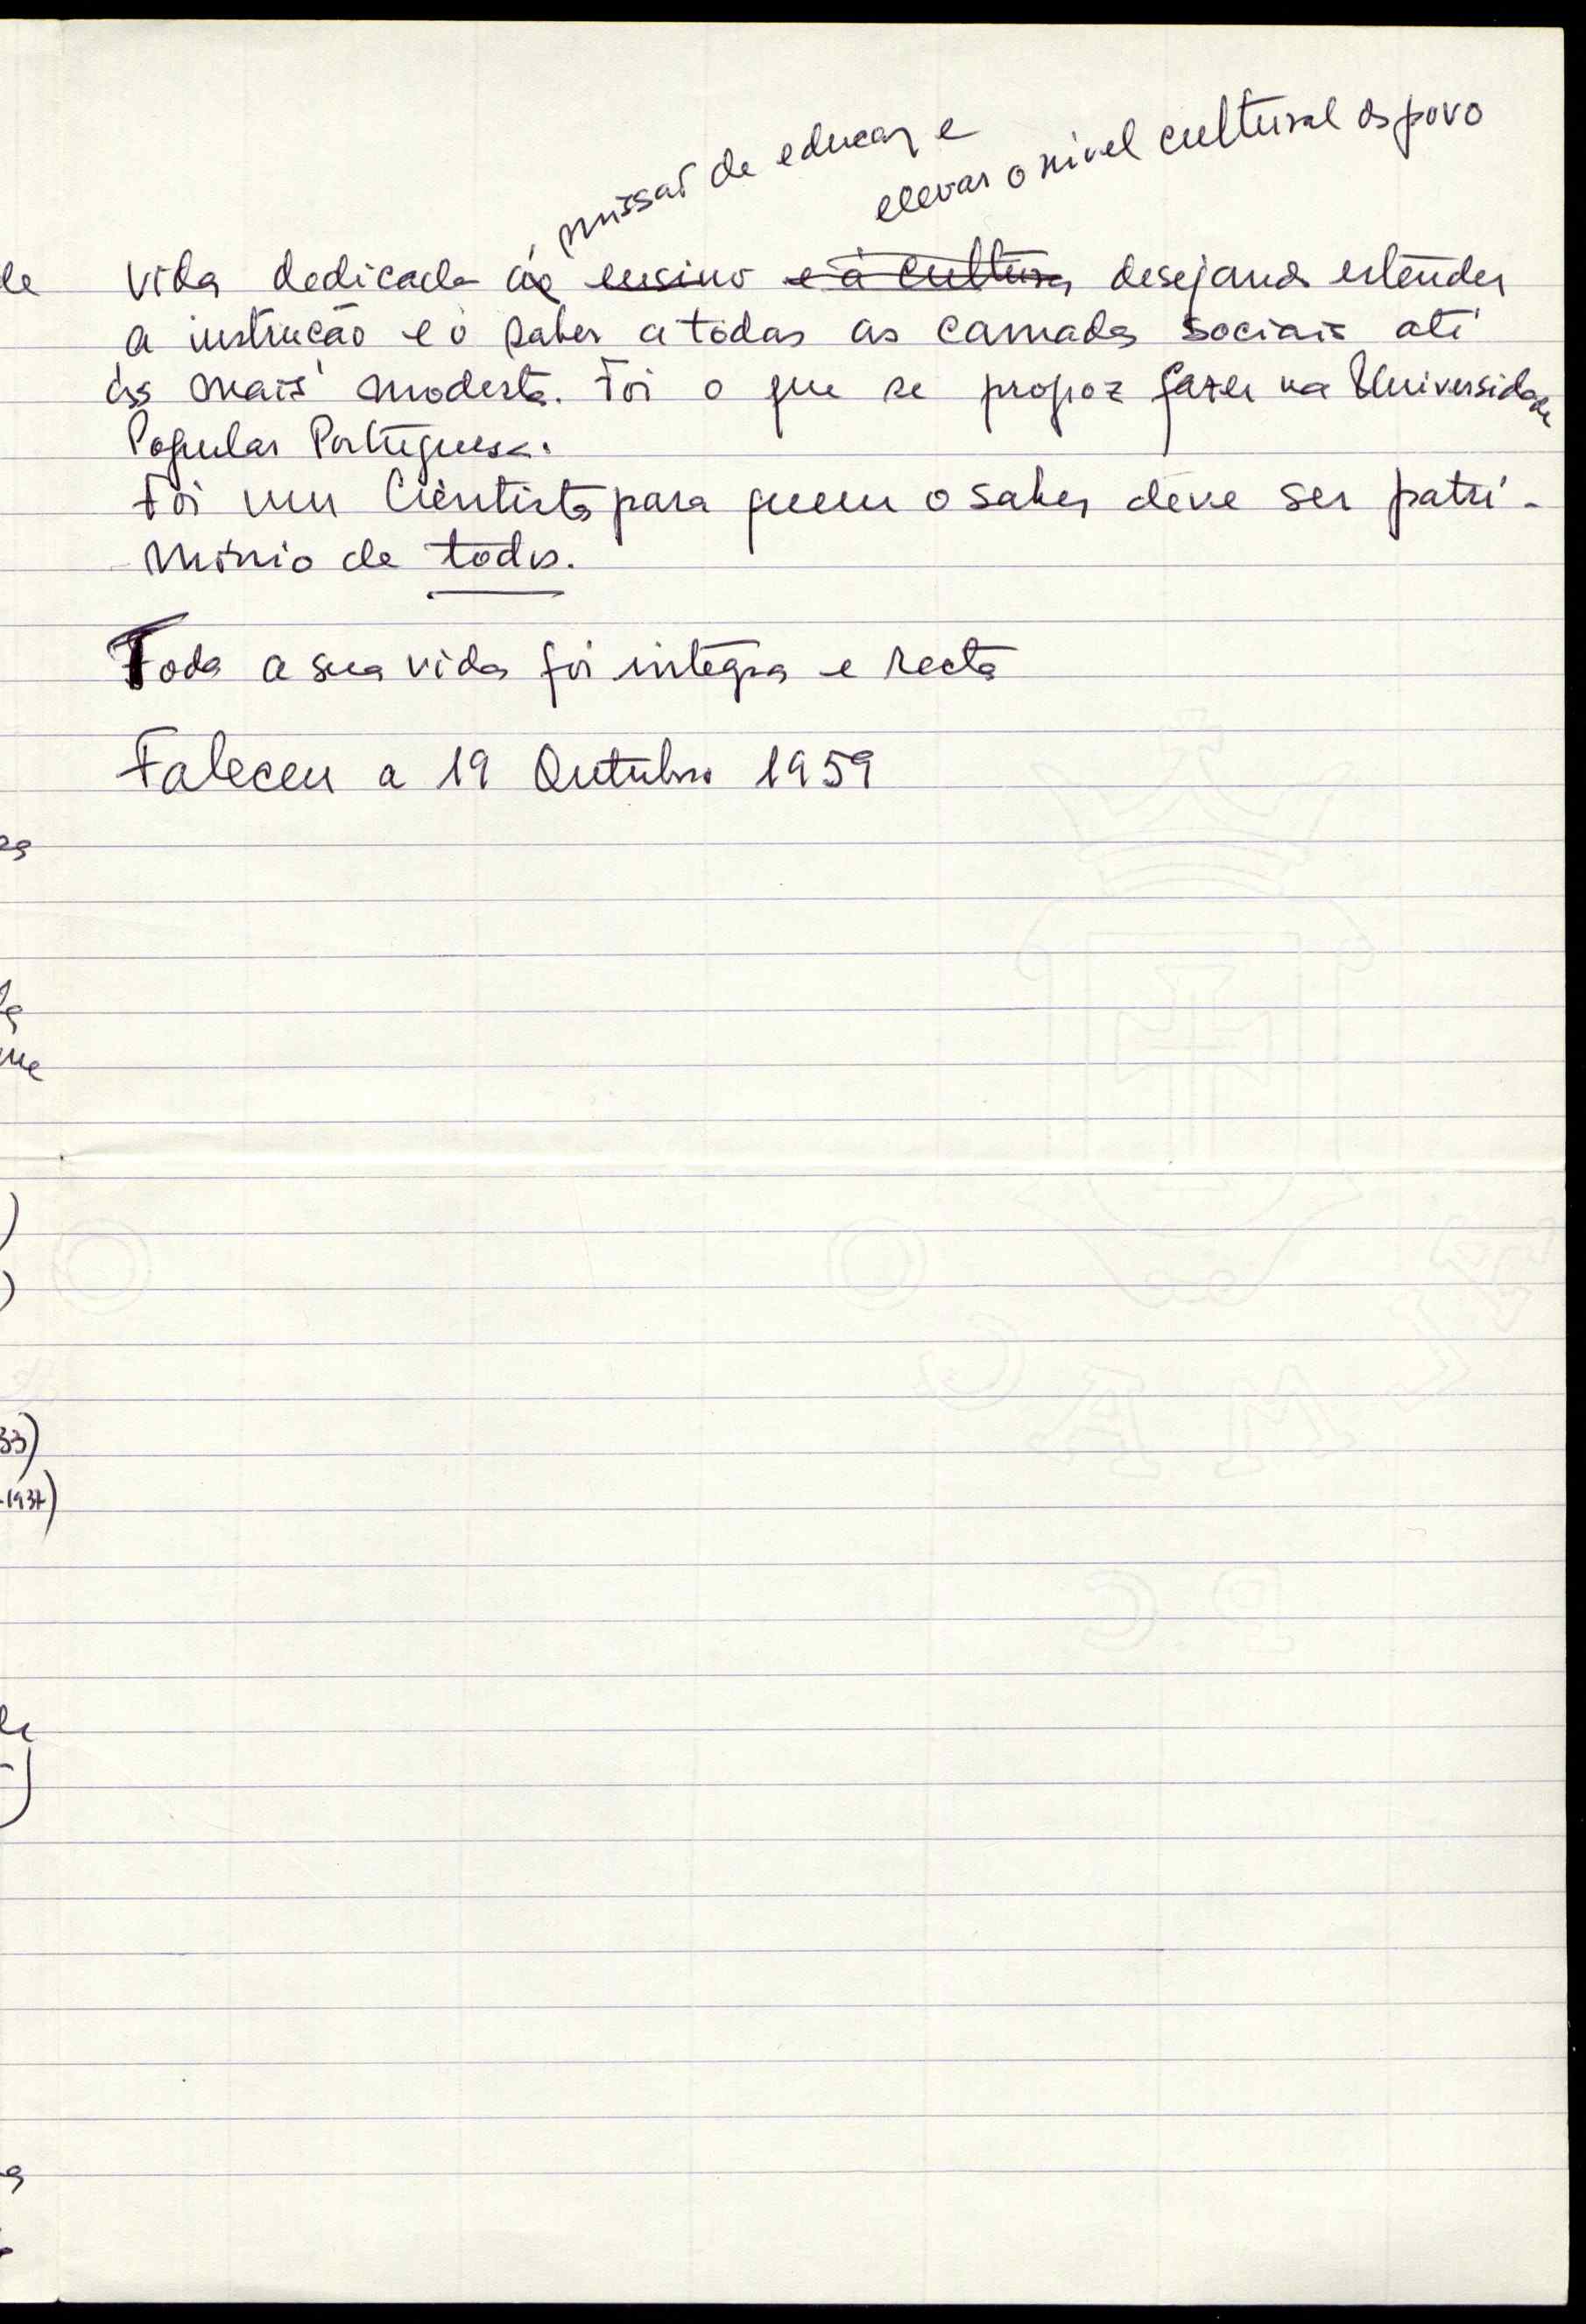 missão de educar e
elevar o nivel cultural do povo
vida dedicada ao ensino e à cultura desejando estender
a instrucão e o saber a todas as camadas sociais até
ás mais modestas. Foi o que se propoz fazer na Universidade
Popular Portuguesa.
Foi um Cientista para quem o saber deve ser patri-
mónio de todos.
Toda a sua vida foi integra e recta
Faleceu a 19 Outubro 1959
de
me
33)
-1937)